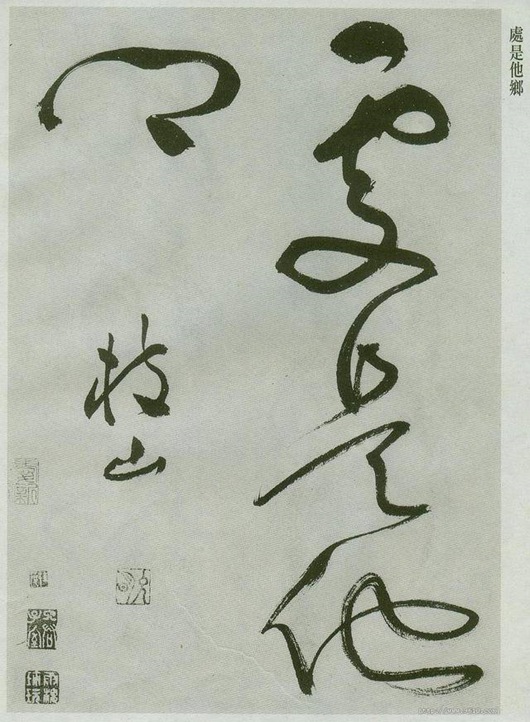 處是他鄉
處是他
鄉
枝山